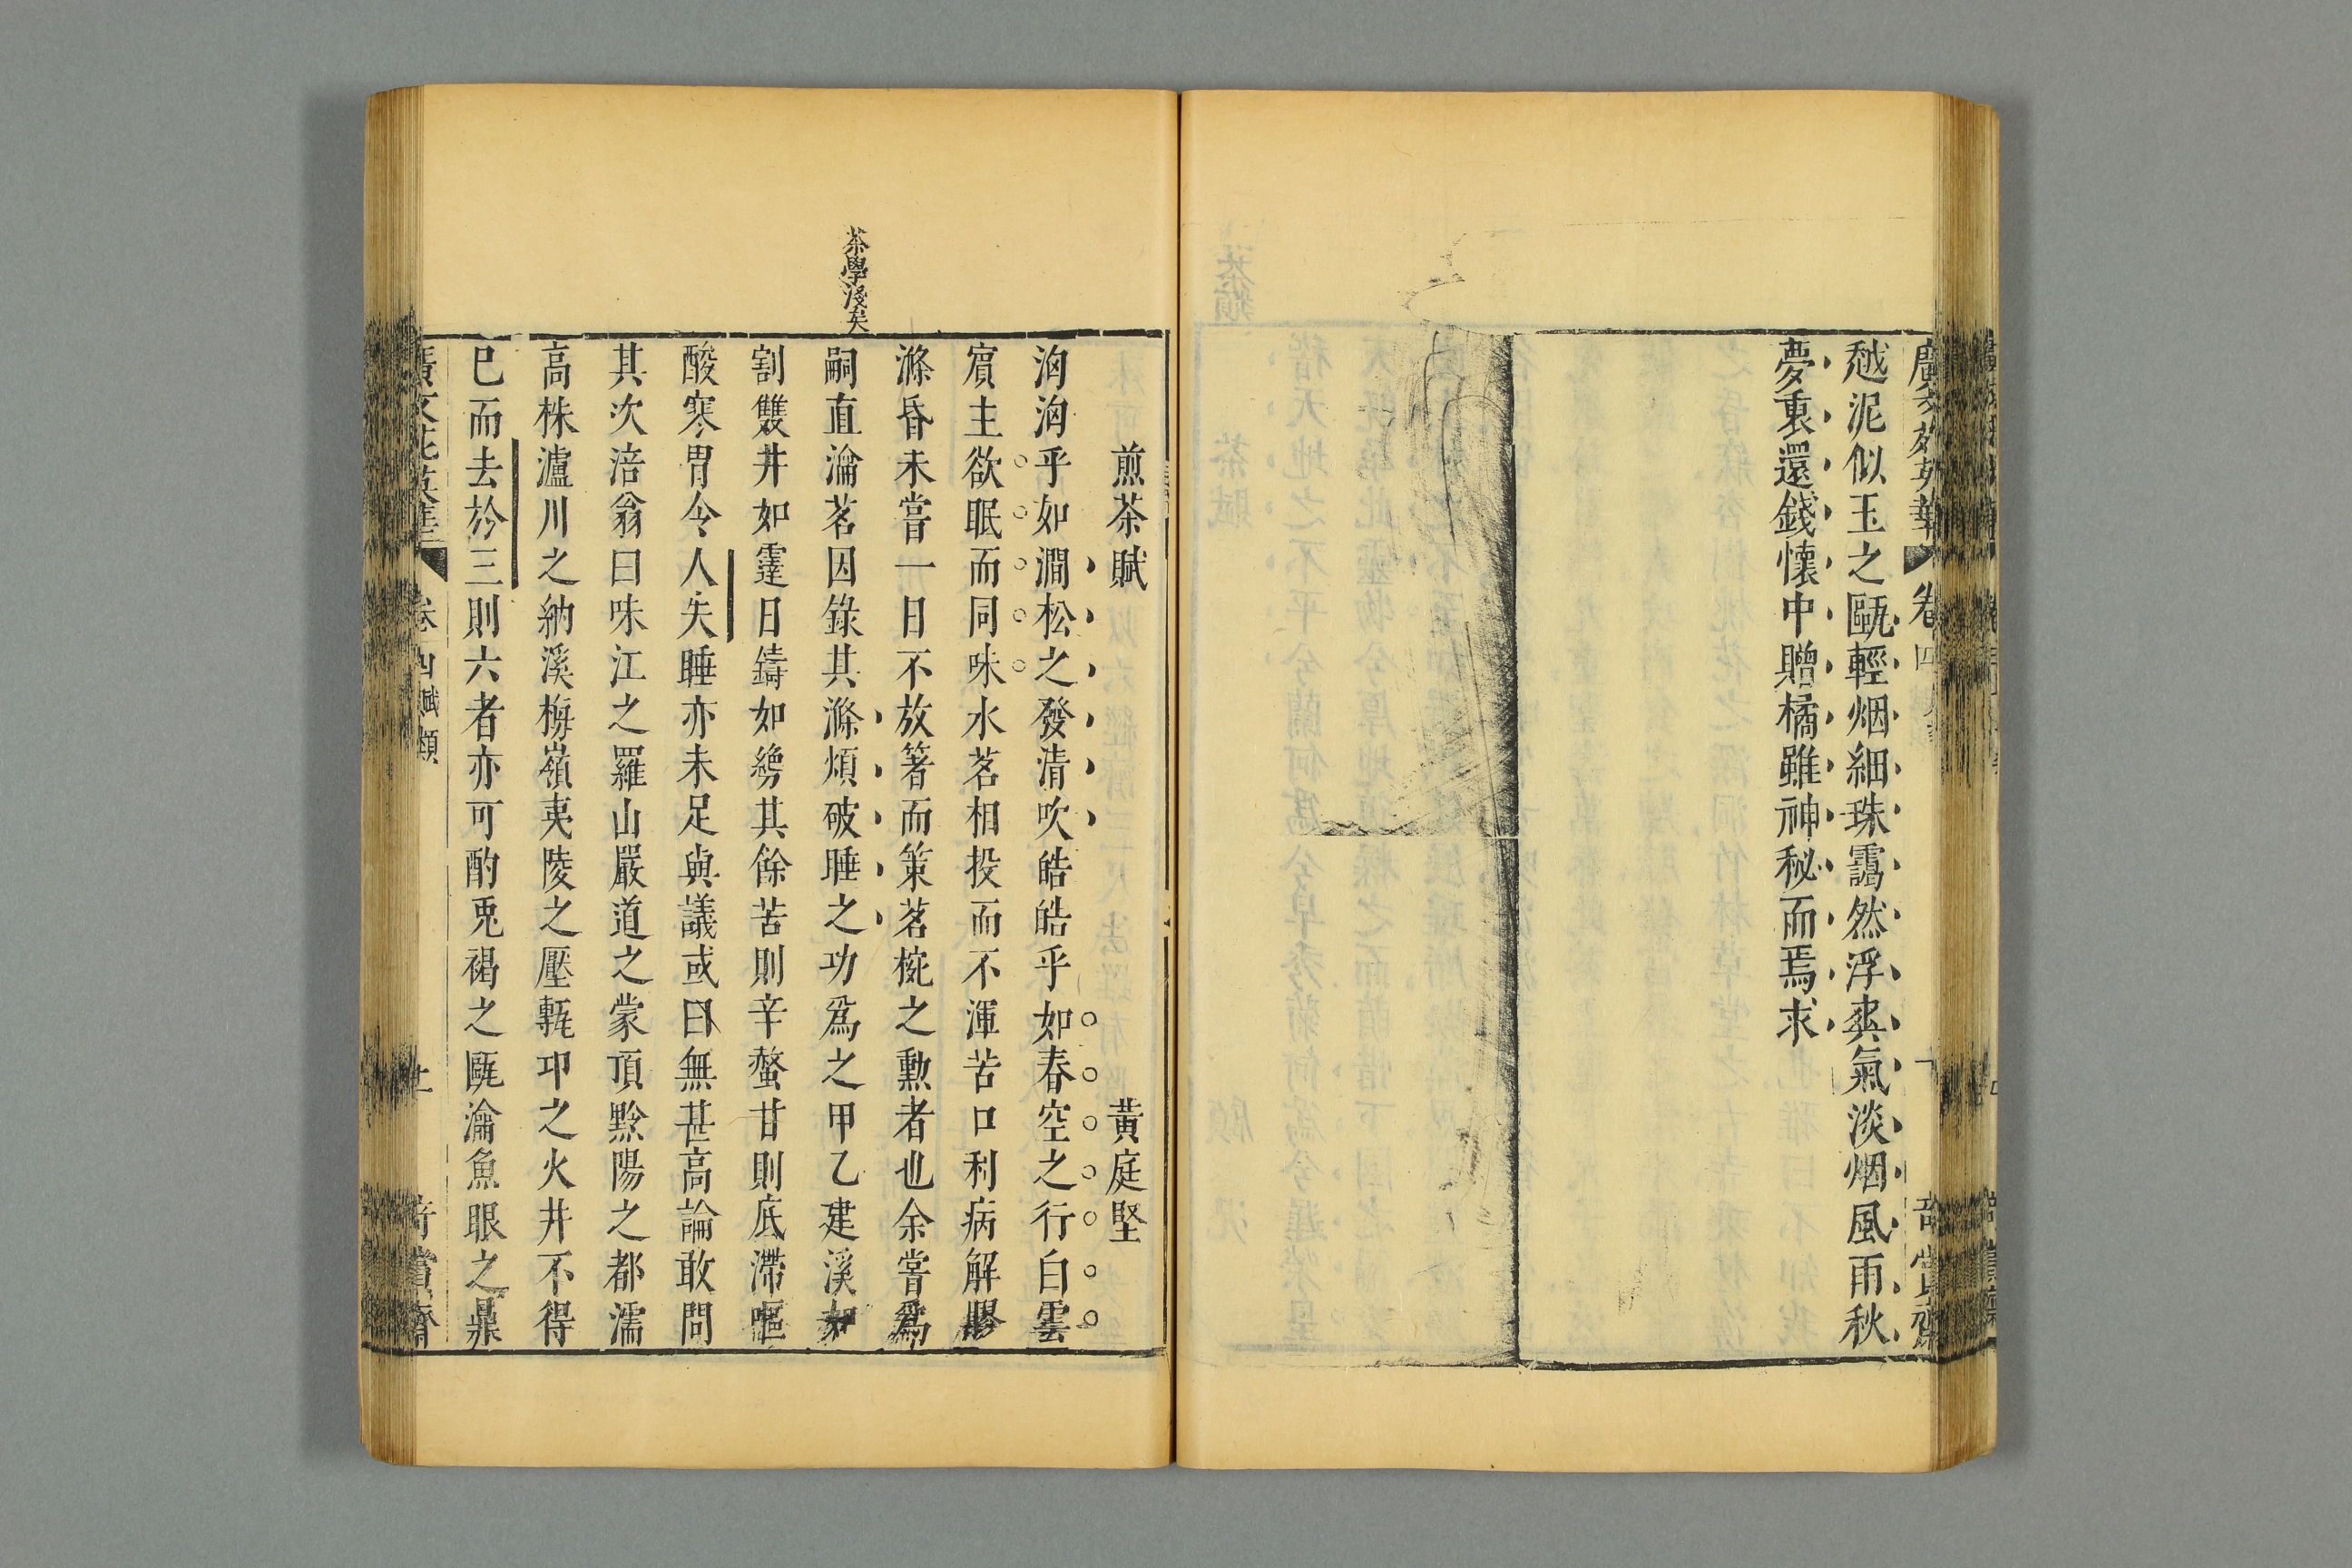 廣文苑英華 卷四 奇賞齋
越泥似玉之甌輕烟細珠靄然浮爽氣淡烟風雨秋
夢裏還錢懷中贈橘雖神秘而焉求
煎茶賦 黃庭堅
洶洶乎如澗松之發清吹皓皓乎如春空之行白雲
賔主欲眠而同味水茗相投而不渾苦口利病解膠
滌昏未嘗一日不放箸而策茗椀之勳者也余嘗爲
嗣直瀹茗因錄其滌煩破睡之功爲之甲乙建溪如
割雙井如霆日鑄如絕其餘苦則辛螫甘則底滯嘔
酸寒胃令人失睡亦未足與議或曰無甚高論敢問
其次涪翁曰味江之羅山嚴道之蒙頂黔陽之都濡
高株瀘川之納溪梅嶺夷陵之壓甎卭之火井不得
已而去於三則六者亦可酌兎褐之甌瀹魚眼之鼎
茶學淺矣
廣文苑英華 卷四賦類 奇賞齋